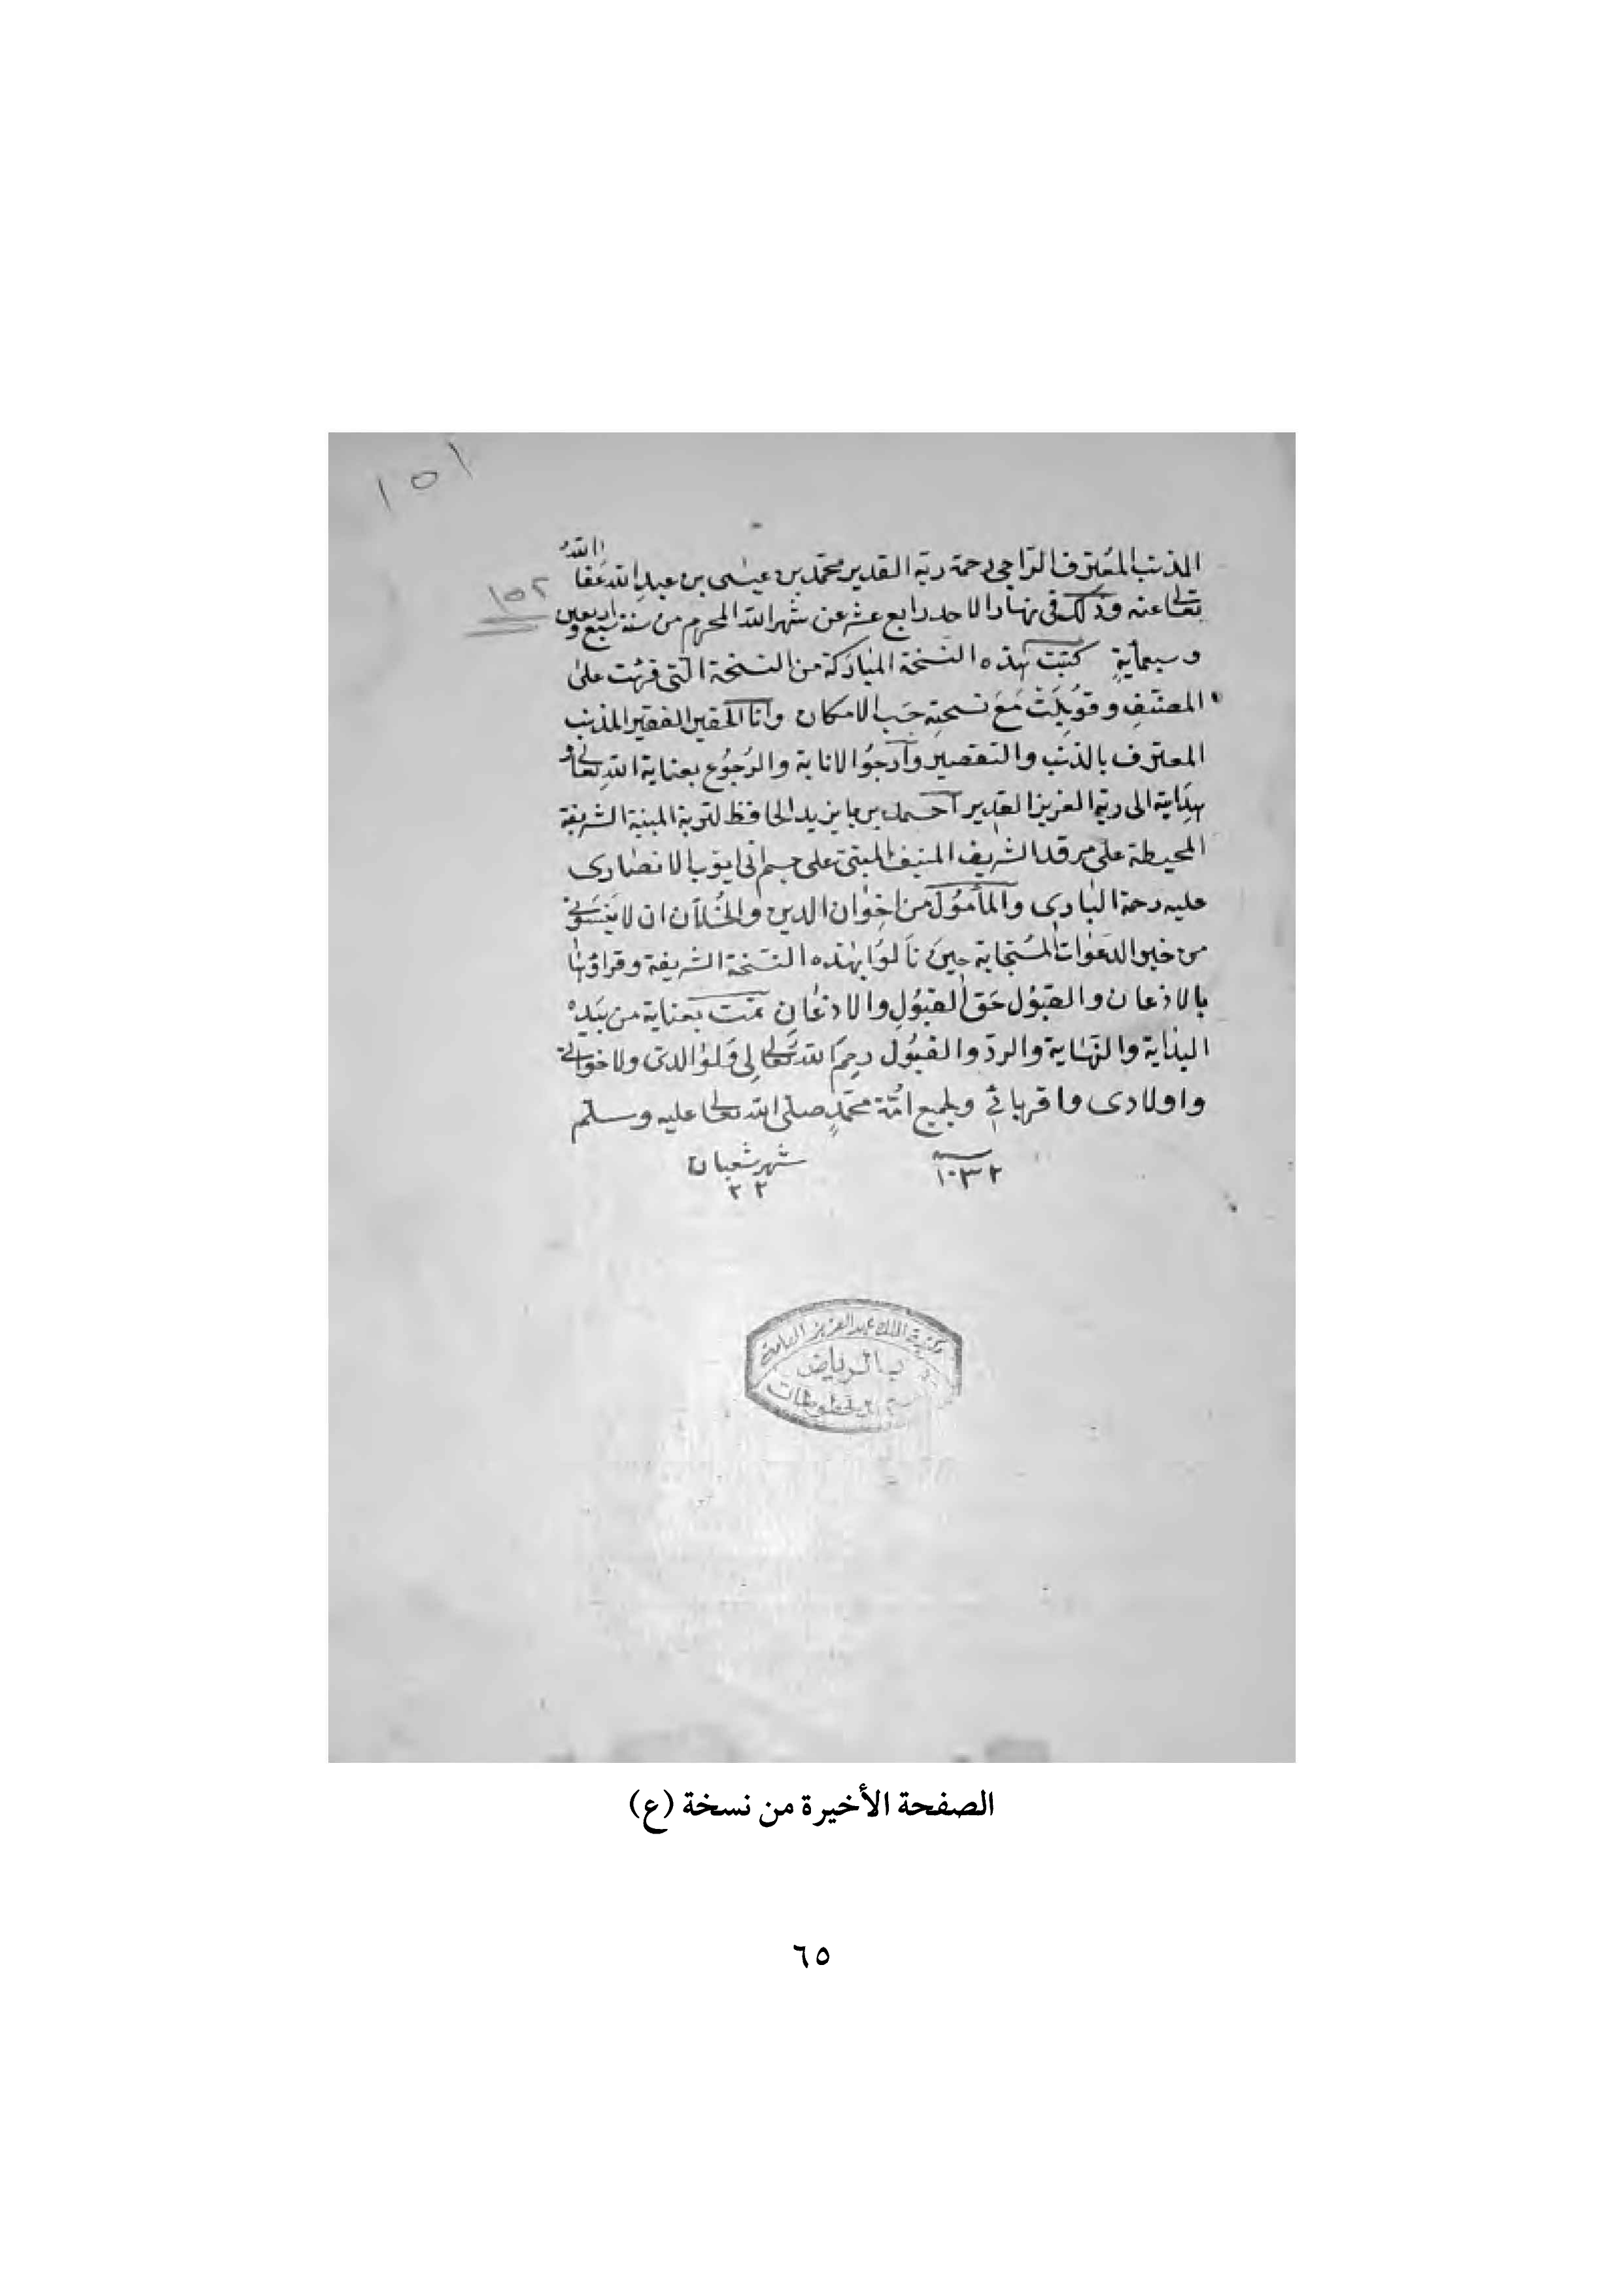 ١٥١
المذنب المعترف الراجي رحمة ربه القدير محمد بن عيسى بن عبد الله عفا الله
تعالى عنه وذلك في نهار الاحد رابع عشر من شهر الله المحرم من سنة سبع واربعين
١٥٢
وسبعماية كتبت هذه النسخة المباركة من النسخة التي قرئت على
المصنف وقوبلت مع نسخته حسب الامكان وانا الحقير الفقير المذنب
المعترف بالذنب والتقصير وارجو الانابة والرجوع بعناية الله تعالى و
بهدايته الى ربه العزيز القدير احمد بن بايزيد الحافظ لتربة المبنية الشريفة
المحيطة على مرقد الشريف المنيف المبتنى على جسم ابي ايوب الانصاري
عليه رحمة الباري والمأمول من اخوان الدين والخلان ان لا ينسوني
من خير الدعوات المستجابة حين نالوا بهذه النسخة الشريفة وقراؤها
بالاذعان والقبول حق القبول والاذعان تمت بعناية من بيده
البداية والنهاية والرد والقبول رحم الله تعالى لي ولوالدي ولاخواني
واولادي واقربائي ولجميع امة محمد صلى الله تعالى عليه وسلم
سنة ١٠٣٢ شهر شعبان ٢٢
مكتبة الملك عبد العزيز العامة
بالرياض
المخطوطات
الصفحة الأخيرة من نسخة (ع)
٦٥